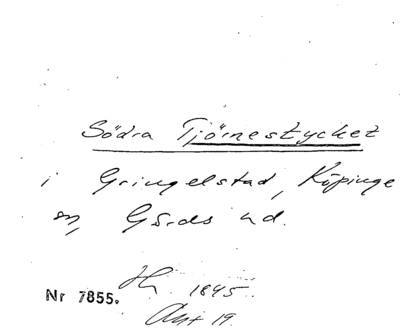 Södra Tjörnestycket
i Gringelstad, Köpinge
sn, Gärds hd.
Hy 1845.
Nr 7855.
Akt 19